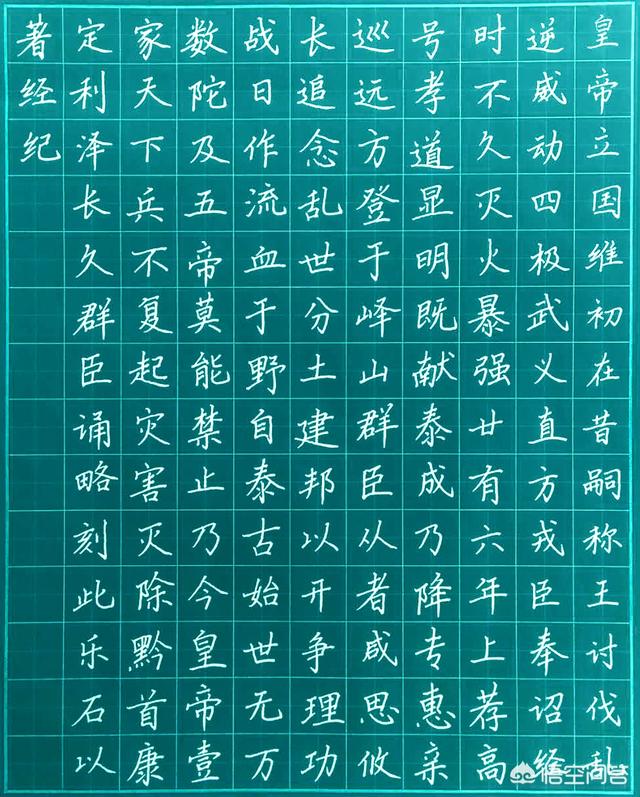 皇帝立国维初在昔嗣称王讨伐乱
逆威动四极武义直方戎臣奉诏经
时不久灭火暴强廿有六年上荐高
号孝道显明既献泰成乃降专惠亲
巡远方登于峄山群臣从者咸思攸
长追念乱世分土建邦以开争理功
战日作流血于野自泰古始世无万
数陀及五帝莫能禁止乃今皇帝壹
家天下兵不复起灾害灭除黔首康
定利泽长久群臣诵略刻此乐石以
著经纪
悟空问答